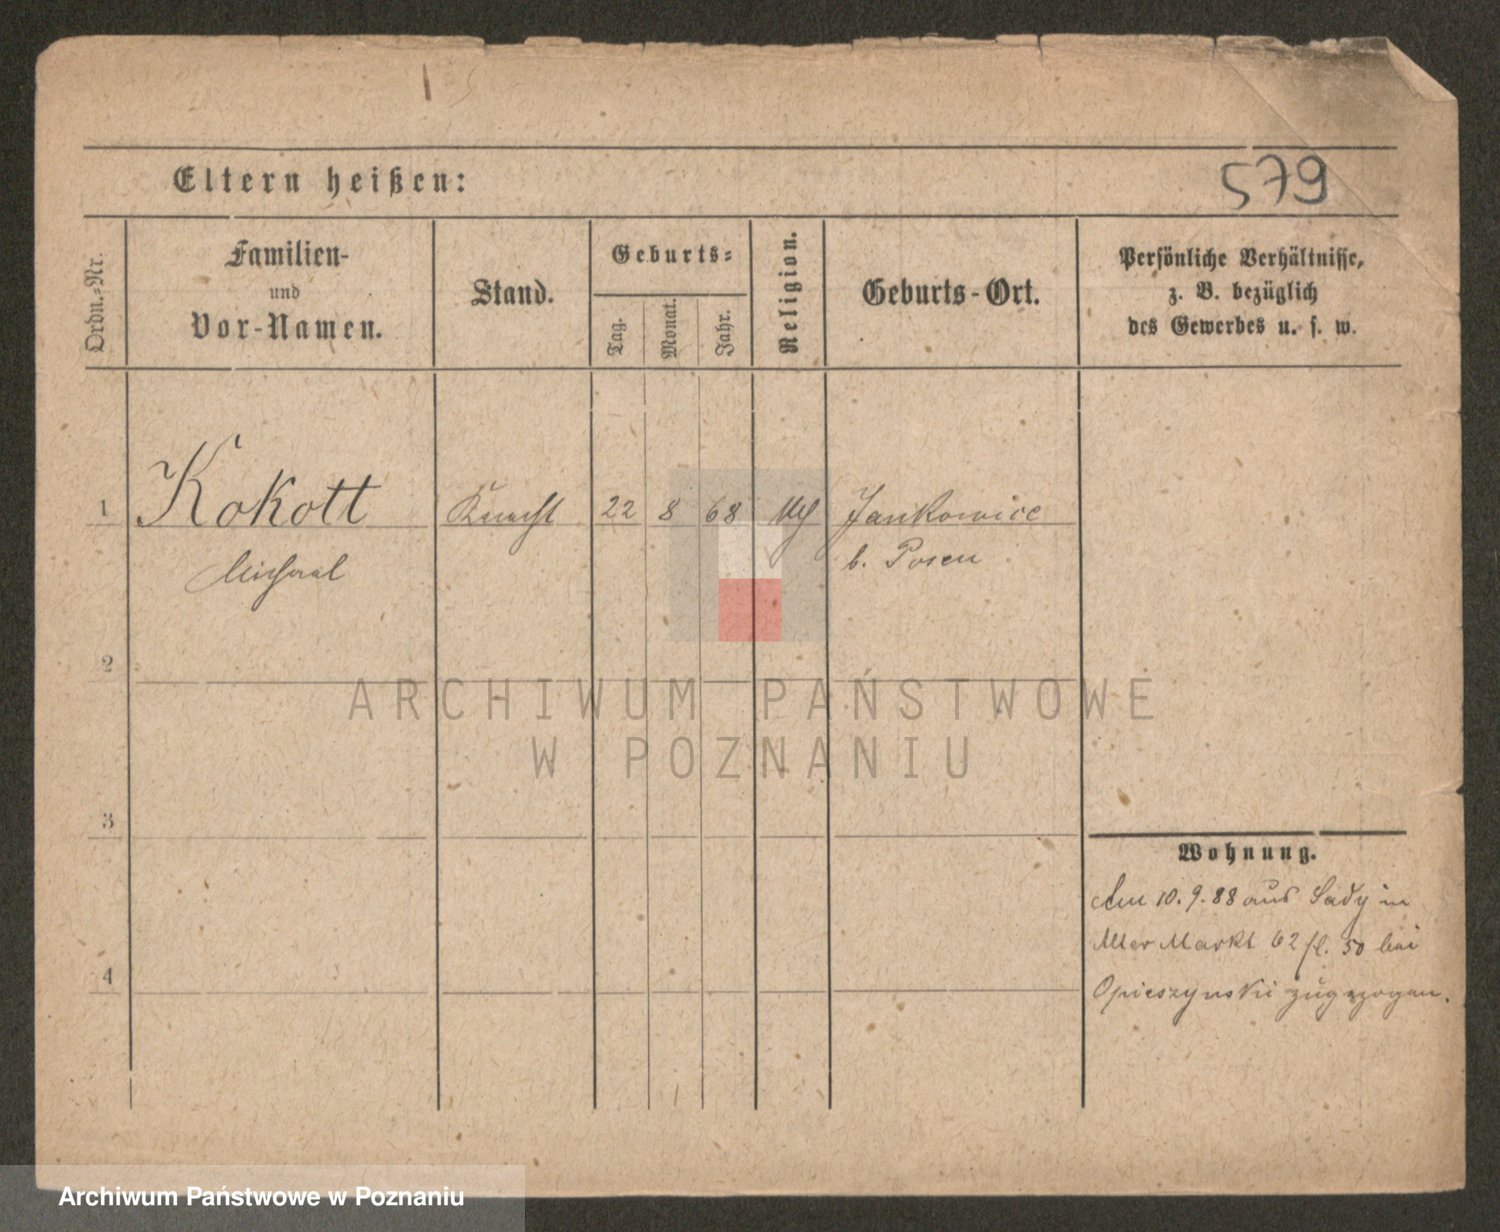 579
Eltern heißen:
Ordn.-Nr.
Familien-
und
Vor-Namen.
Stand.
Geburts-
Tag.
Monat.
Jahr.
Religion.
Geburts-Ort.
Persönliche Verhältnisse,
z. B. bezüglich
des Gewerbes u. s. w.
1 Kokott Knecht 22 8 68 Jankowice
Michael b. Posen
2
3
4
Wohnung.
Am 10. 9. 88 aus Sady in
Alter Markt 62 fl. 50 bei
Opieszynski zugezogen.
ARCHIWUM PAŃSTWOWE
W POZNANIU
Archiwum Państwowe w Poznaniu